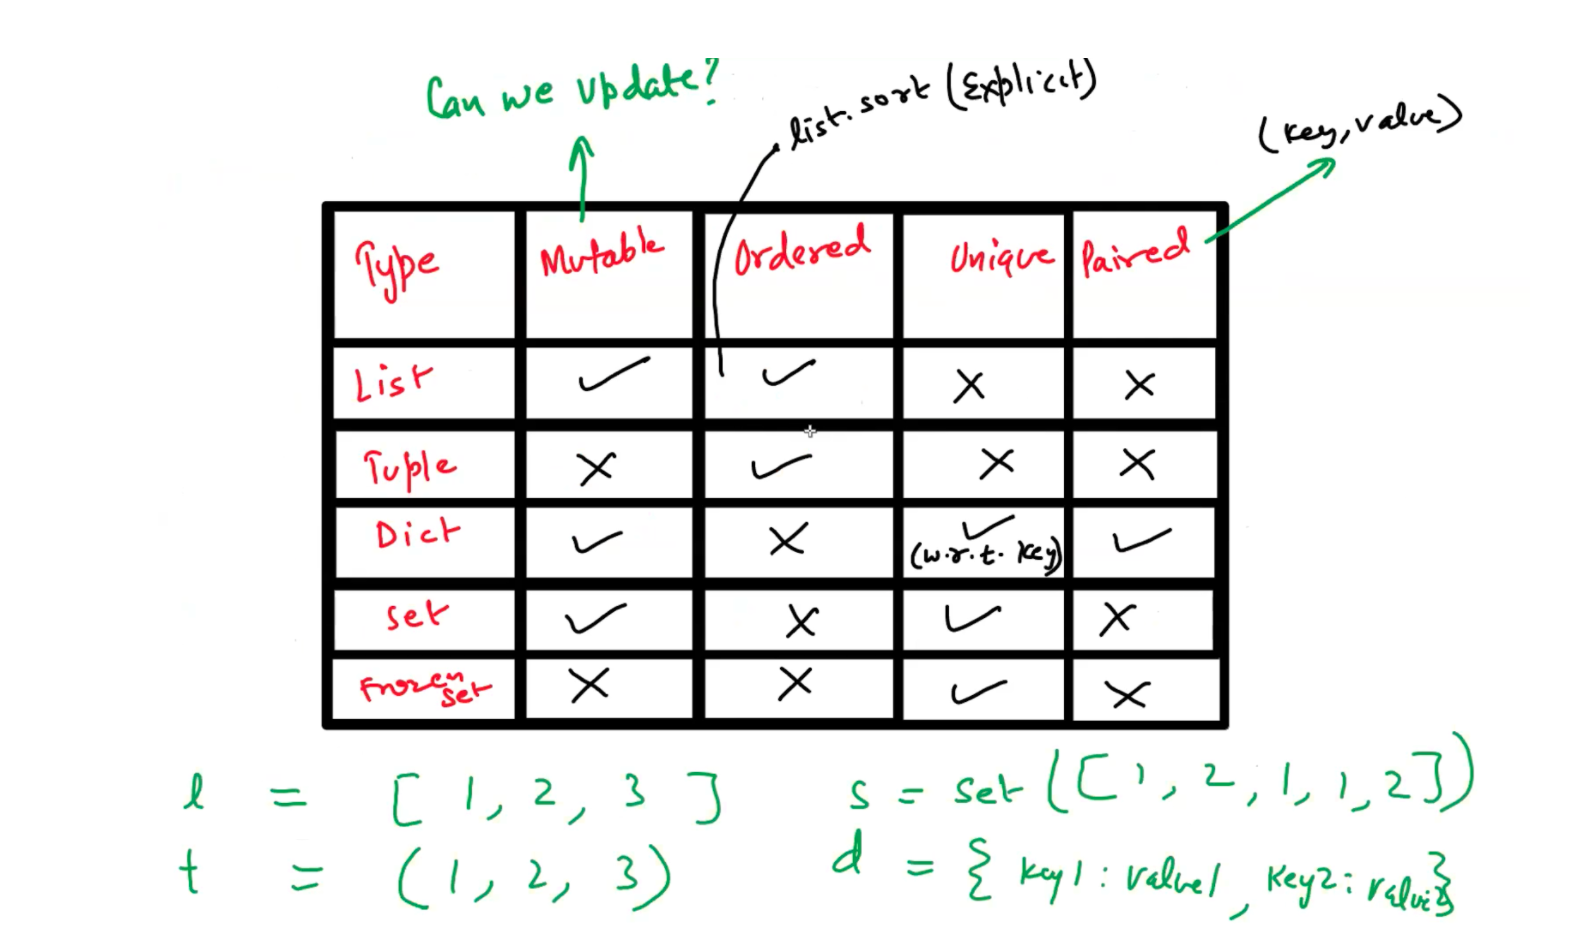 Can we update?
list.sort (Explicit)
(key, value)
Type Mutable Ordered Unique Paired
List ✓ ✓ × ×
Tuple × ✓ × ×
Dict ✓ × ✓ (w.r.t. key) ✓
set ✓ × ✓ ×
Frozen set × × ✓ ×
l = [ 1, 2, 3 ]
s = set ([1, 2, 1, 1, 2])
t = (1, 2, 3)
d = { key1 : value1, key2 : value2}